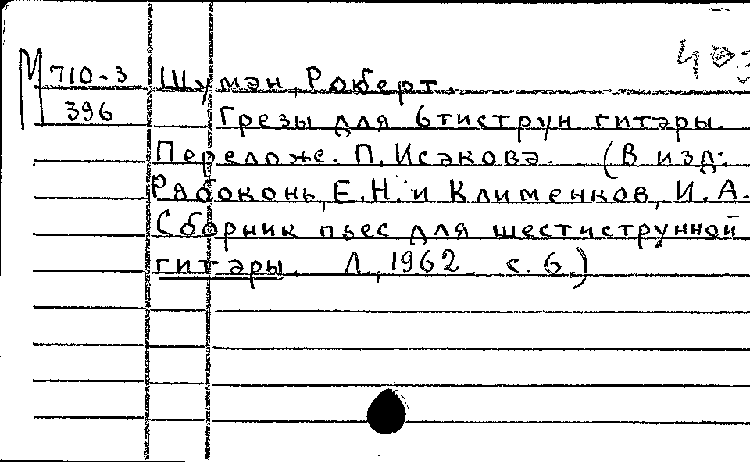 М 710-3 Шуман, Роберт.
396 Грезы для 6тиструн гитары.
Переложе. П. Исакова. (В изд:
Рябоконь, Е.Н. и Клименков, И.А.
Сборник пьес для шестиструнной
гитары. Л., 1962 с. 6.)